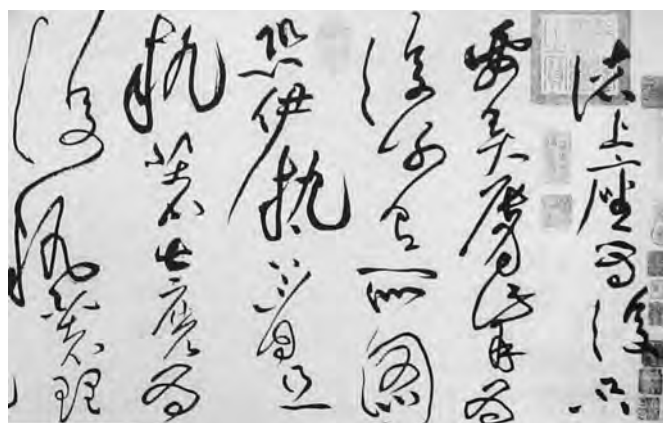 諸上座為復只
要為
復別有所圖
恐伊執著且
執著甚麼為
復執著理